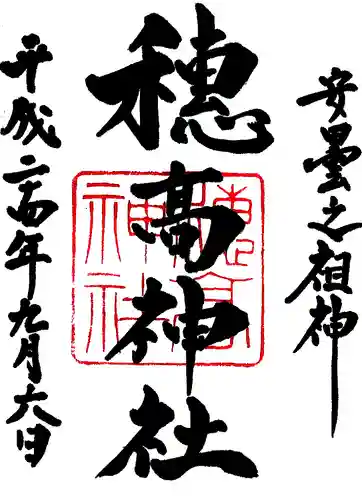 安曇之祖神
穂高神社
穂高神社
平成二十四年九月六日